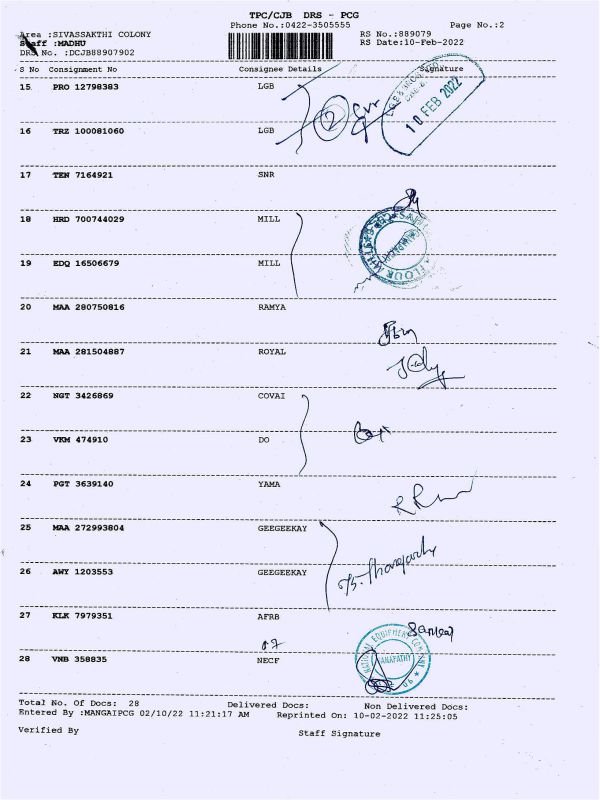 TPC/CJB DRS - PCG
Phone No.:0422-3505555 Page No.:2
Area :SIVASSAKTHI COLONY RS No.:889079
Staff :MADHU RS Date:10-Feb-2022
DRS No. :DCJB88907902
S No Consignment No Consignee Details Signature
15 PRO 12798383 LGB
2
10 FEB 2022
16 TRZ 100081060 LGB
17 TEN 7164921 SNR
18 HRD 700744029 MILL
19 EDQ 16506679 MILL
20 MAA 280750816 RAMYA
21 MAA 281504887 ROYAL
22 NGT 3426869 COVAI
23 VKM 474910 DO
24 PGT 3639140 YAMA
25 MAA 272993804 GEEGEEKAY
26 AWY 1203553 GEEGEEKAY
27 KLK 7979351 AFRB
NATIONAL EQUIPMENT COMPANY
GANAPATHY
28 VNB 358835 NECF
Total No. Of Docs: 28 Delivered Docs: Non Delivered Docs:
Entered By :MANGAIPCG 02/10/22 11:21:17 AM Reprinted On: 10-02-2022 11:25:05
Verified By Staff Signature